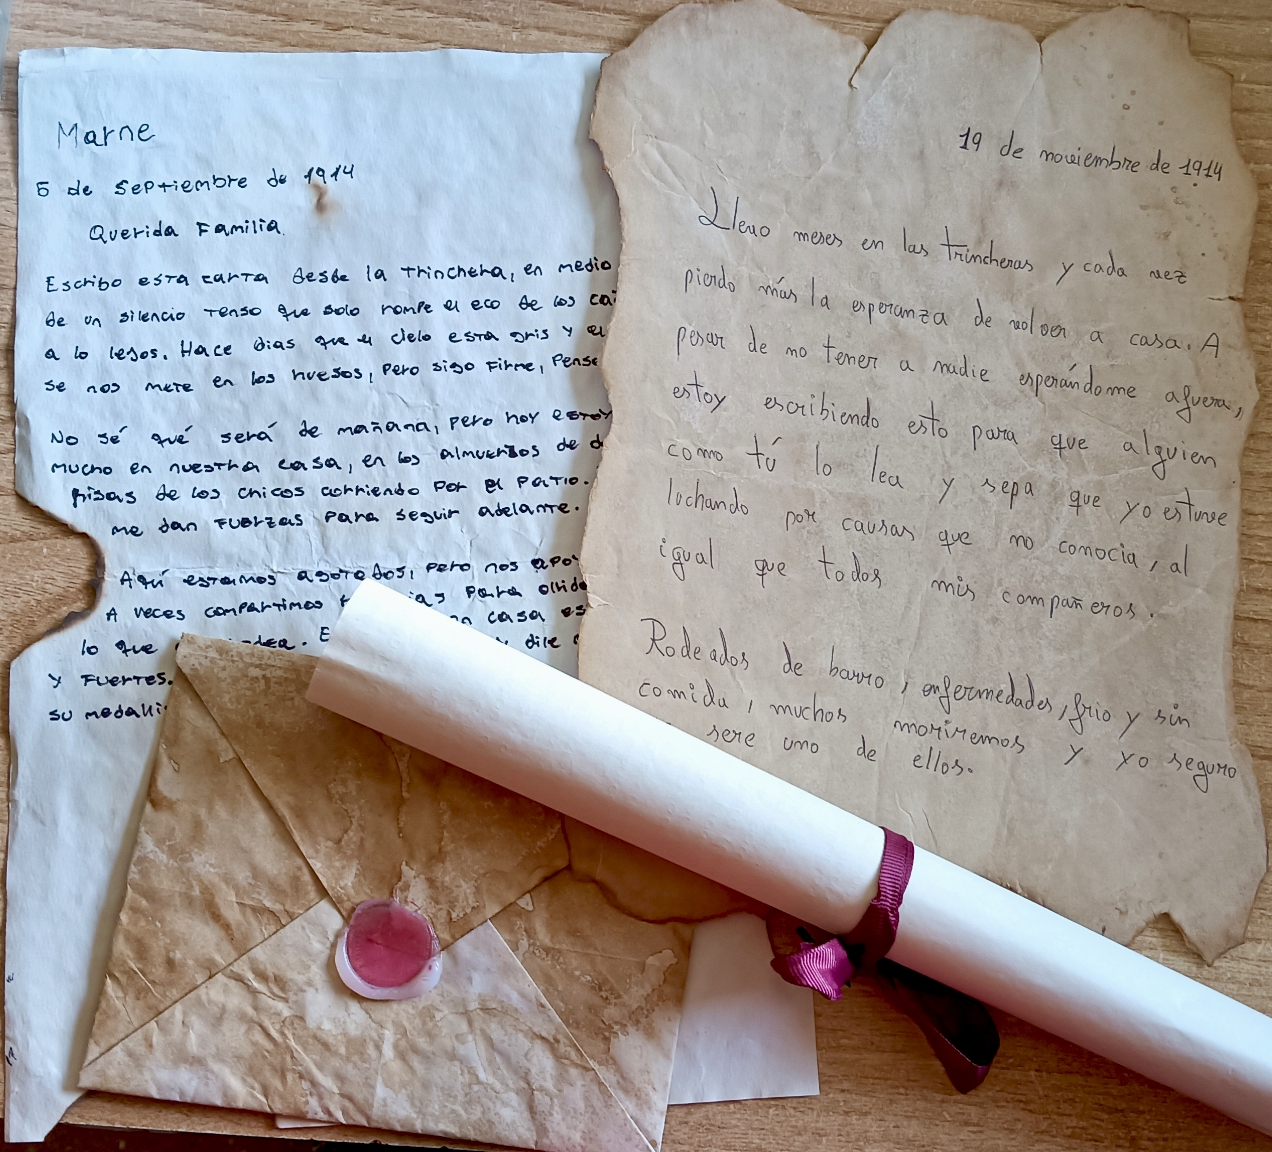 Marne
5 de septiembre de 1914
Querida Familia
Escribo esta carta desde la trinchera, en medio
de un silencio tenso que solo rompe el eco de los
a lo lejos. Hace dias que el cielo esta gris y el
se nos mete en los huesos, pero sigo firme, Pense
No sé qué será de mañana, pero hoy estoy
mucho en nuestra casa, en los almuerzos de
risas de los chicos corriendo por el patio.
me dan fuerzas para seguir adelante.
Aquí estamos agotados, pero nos
A veces compartimos para
lo que casa
y fuertes. dile
su
19 de noviembre de 1914
Llevo meses en las trincheras y cada vez
pierdo más la esperanza de volver a casa. A
pesar de no tener a nadie esperándome afuera,
estoy escribiendo esto para que alguien
como tú lo lea y sepa que yo estuve
luchando por causas que no conocia, al
igual que todos mis compañeros.
Rodeados de barro, enfermedades, frio y sin
comida, muchos moriremos y yo seguro
sere uno de ellos.